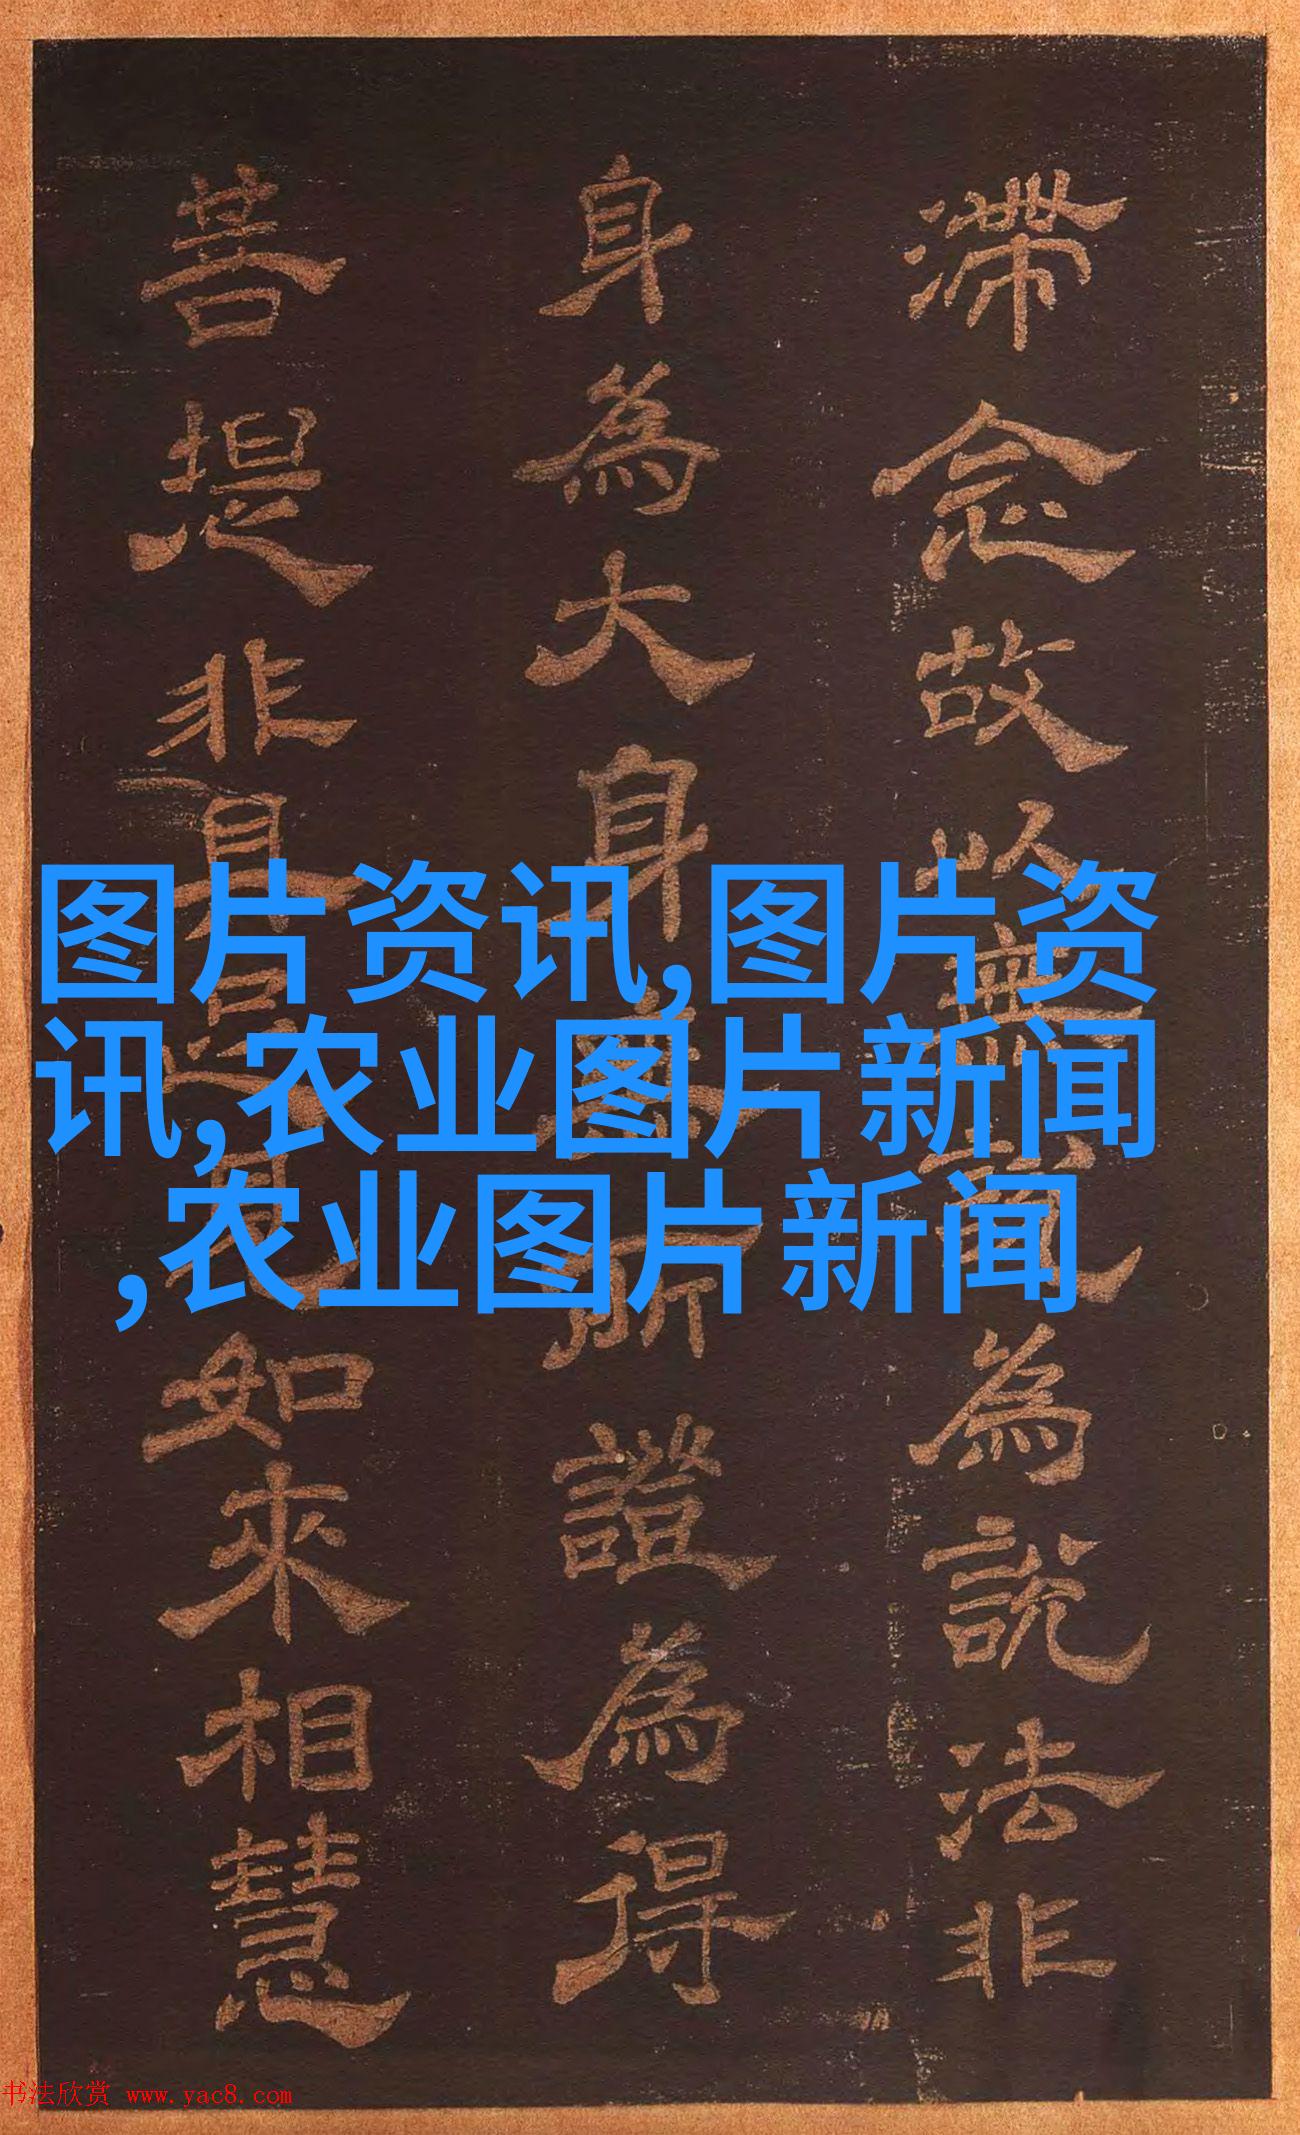 滯念故以無說為說法非
身為大身無所證為得
菩提非具足見如來相慧
图片资讯,图片资
讯,农业图片新闻
,农业图片新闻
书法欣赏 www.yac8.com